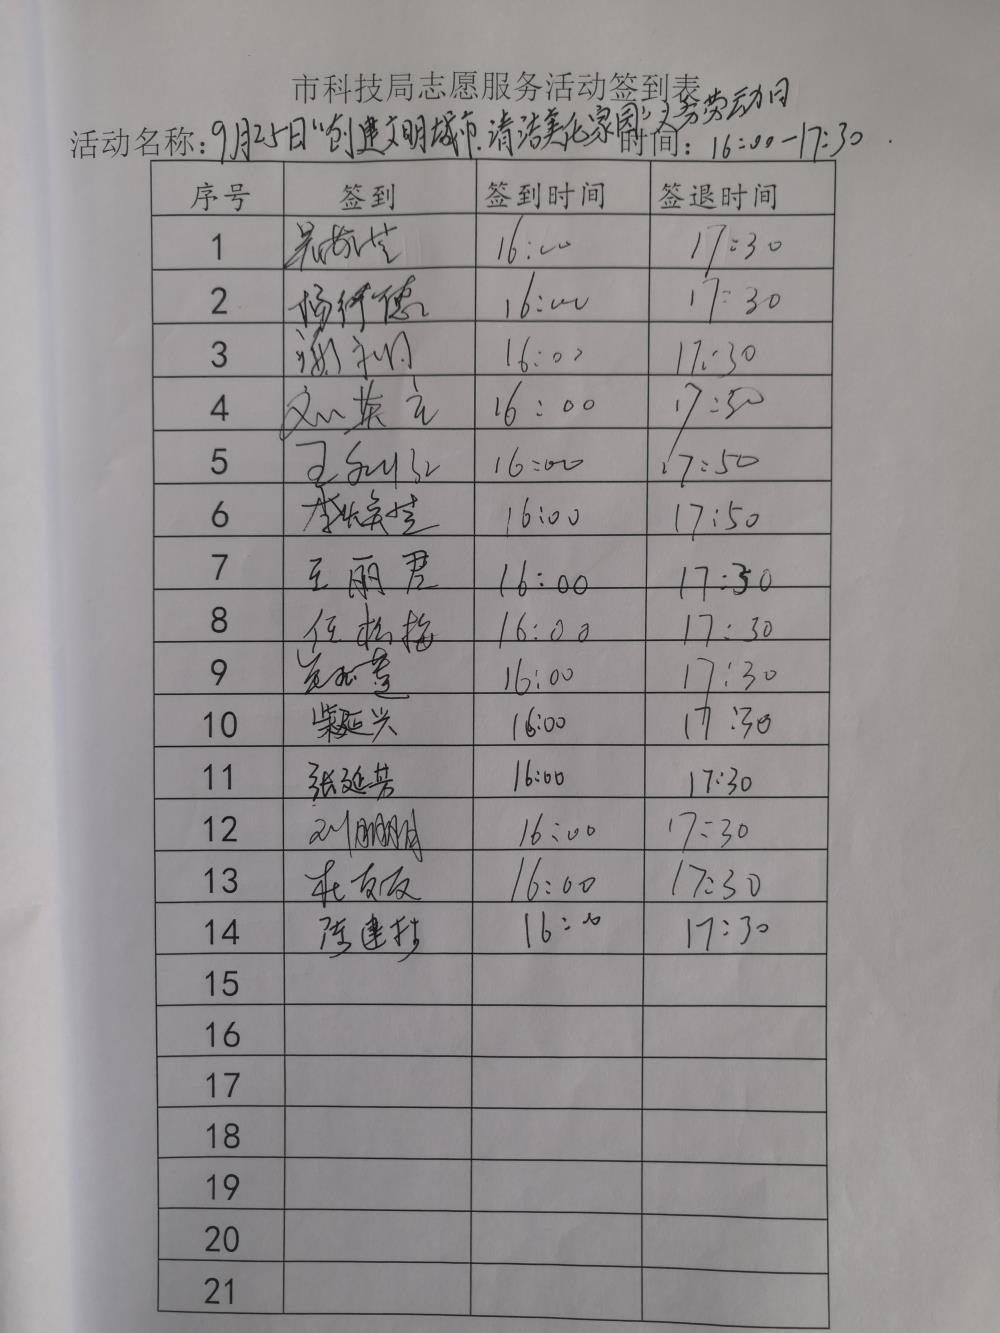 市科技局志愿服务活动签到表
活动名称：9月25日"创建文明城市、清洁美化家园"义务劳动日 时间：16:00-17:30
序号 签到 签到时间 签退时间
1 16:00 17:30
2 16:00 17:30
3 16:00 17:30
4 16:00 17:50
5 王 16:00 17:50
6 李 16:00 17:50
7 王丽君 16:00 17:30
8 任松梅 16:00 17:30
9 16:00 17:30
10 柴延兴 16:00 17:30
11 张延芳 16:00 17:30
12 刘朋朋 16:00 17:30
13 杜友友 16:00 17:30
14 陈建村 16:00 17:30
15
16
17
18
19
20
21